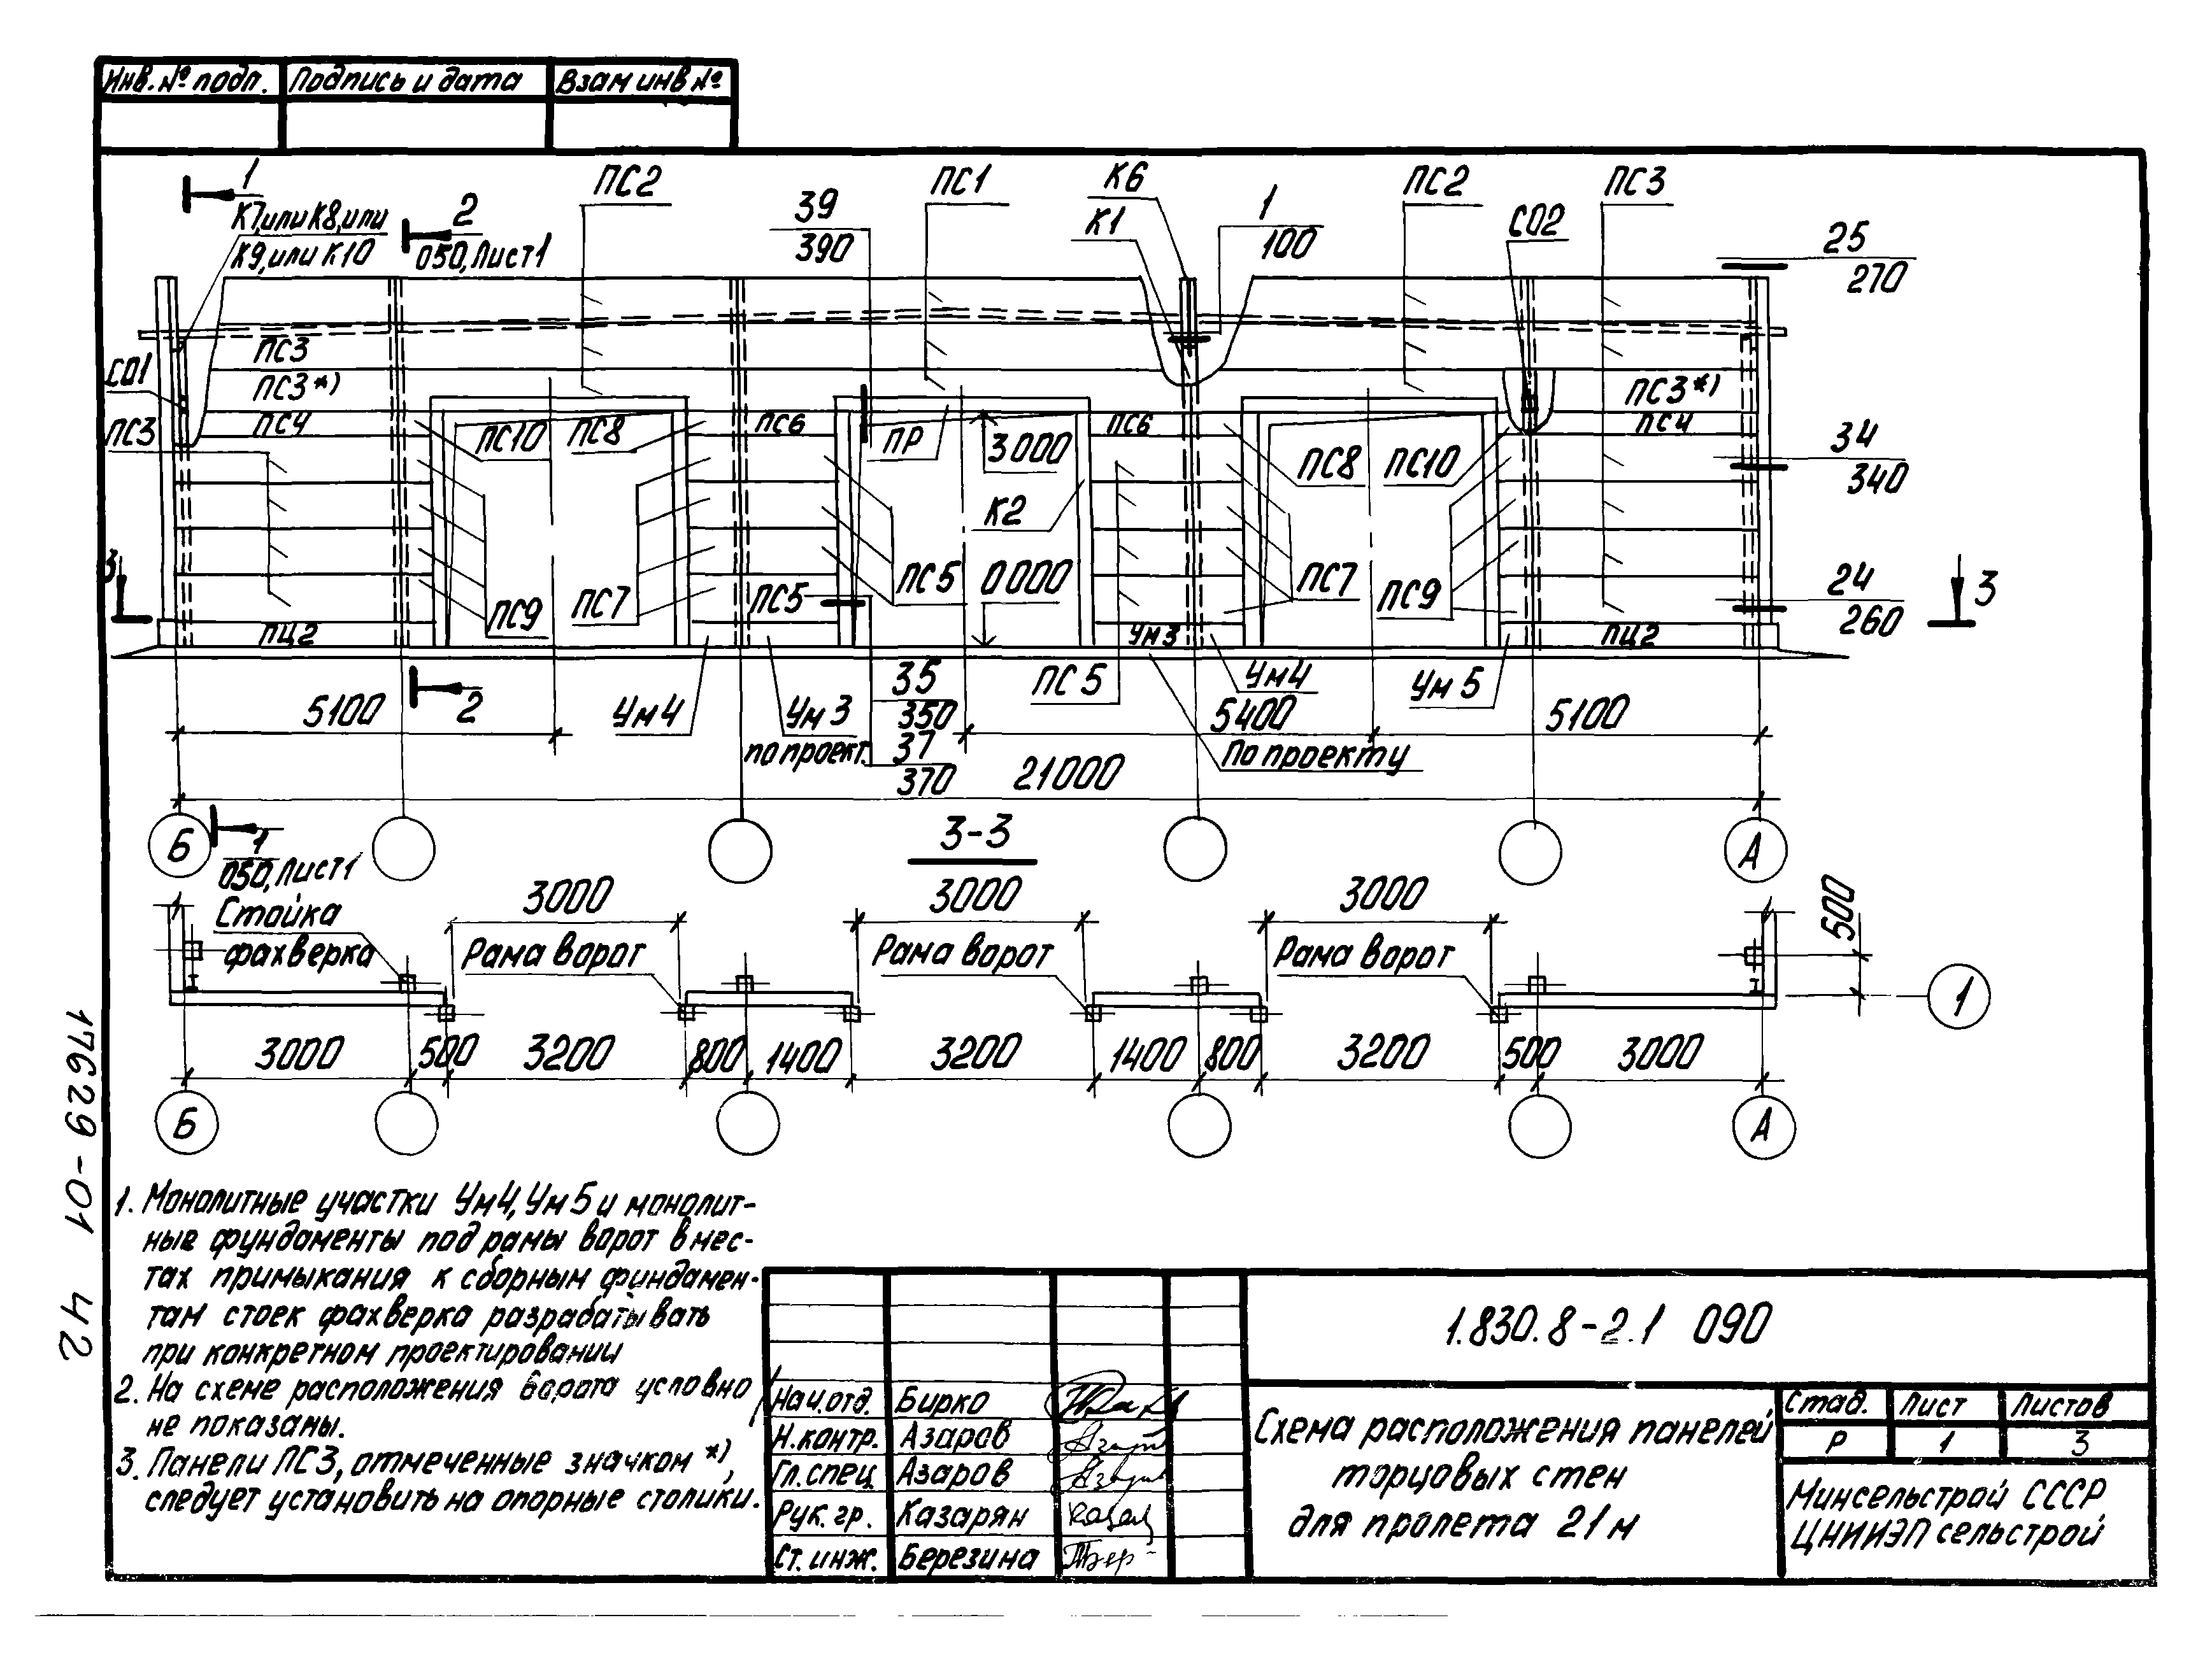 Инв. № подп. Подпись и дата Взам инв №
1
ПС2
ПС1
К6
ПС2
ПС3
К7,или К8,или
К9,или К10
2
050, Лист1
39
390
К1
1
100
СО2
25
270
ПС3
СО1
ПС3*)
ПС3*)
ПС3
ПС4
ПС10
ПС8
ПС6
ПР
3000
ПС6
ПС4
34
340
ПС8
ПС10
К2
3
ПС9
ПС7
ПС5
ПС5
0000
ПС7
ПС9
24
260
3
ПЦ2
Ум3
ПЦ2
2
Ум4
Ум3
по проект.
35
350
37
370
ПС5
Ум4
Ум5
По проекту
5100
5400
5100
21000
Б
А
1
050, Лист1
3-3
Стойка
фахверка
3000
3000
3000
500
Рама ворот
Рама ворот
Рама ворот
1
3000 500 3200 800 1400 3200 1400 800 3200 500 3000
Б
А
1. Монолитные участки Ум4, Ум5 и монолит-
ные фундаменты под рамы ворот в мес-
тах примыкания к сборным фундамен-
там стоек фахверка разрабатывать
при конкретном проектировании
2. На схеме расположения ворота условно
не показаны.
3. Панели ПС3, отмеченные значком *),
следует установить на опорные столики.
1.830.8-2.1 090
Нач.отд. Бирко
Н.контр. Азаров
Гл.спец Азаров
Рук. гр. Казарян
Ст. инж. Березина
Схема расположения панелей
торцовых стен
для пролета 21м
Стад. Лист Листов
Р 1 3
Минсельстрой СССР
ЦНИИЭПсельстрой
17629-01 42